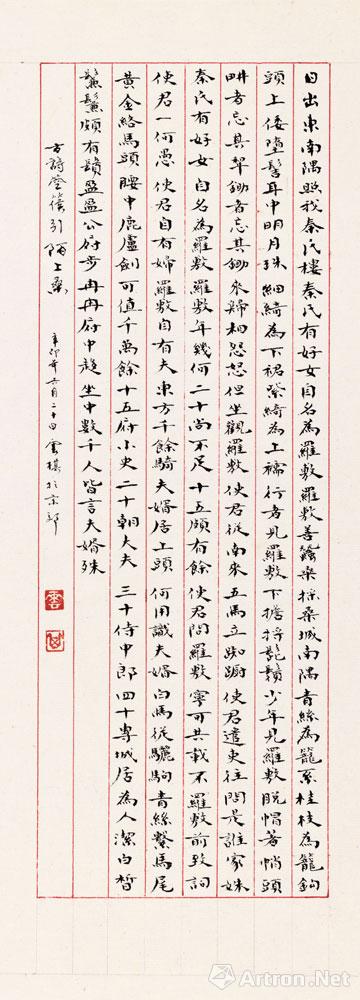 日出東南隅照我秦氏樓秦氏有好女自名為羅敷羅敷善蠶桑採桑城南隅青絲為籠系桂枝為籠鉤
頭上倭墮髻耳中明月珠緗綺為下裙紫綺為上襦行者見羅敷下擔捋髭鬚少年見羅敷脫帽著帩頭
畊者忘其犂鋤者忘其鋤來歸相怨怒但坐觀羅敷使君從南來五馬立踟躕使君遣吏往問是誰家姝
秦氏有好女自名為羅敷羅敷年幾何二十尚不足十五頗有餘使君問羅敷寧可共載不羅敷前致詞
使君一何愚使君自有婦羅敷自有夫東方千餘騎夫婿居上頭何用識夫婿白馬從驪駒青絲繫馬尾
黃金絡馬頭腰中鹿盧劍可值千萬餘十五府小史二十朝大夫三十侍中郎四十專城居為人潔白皙
鬑鬑頗有鬚盈盈公府步冉冉府中趨坐中數千人皆言夫婿殊
引陌上桑
辛卯年六月二十四雲於京郊
雅昌艺术网
Artron.Net